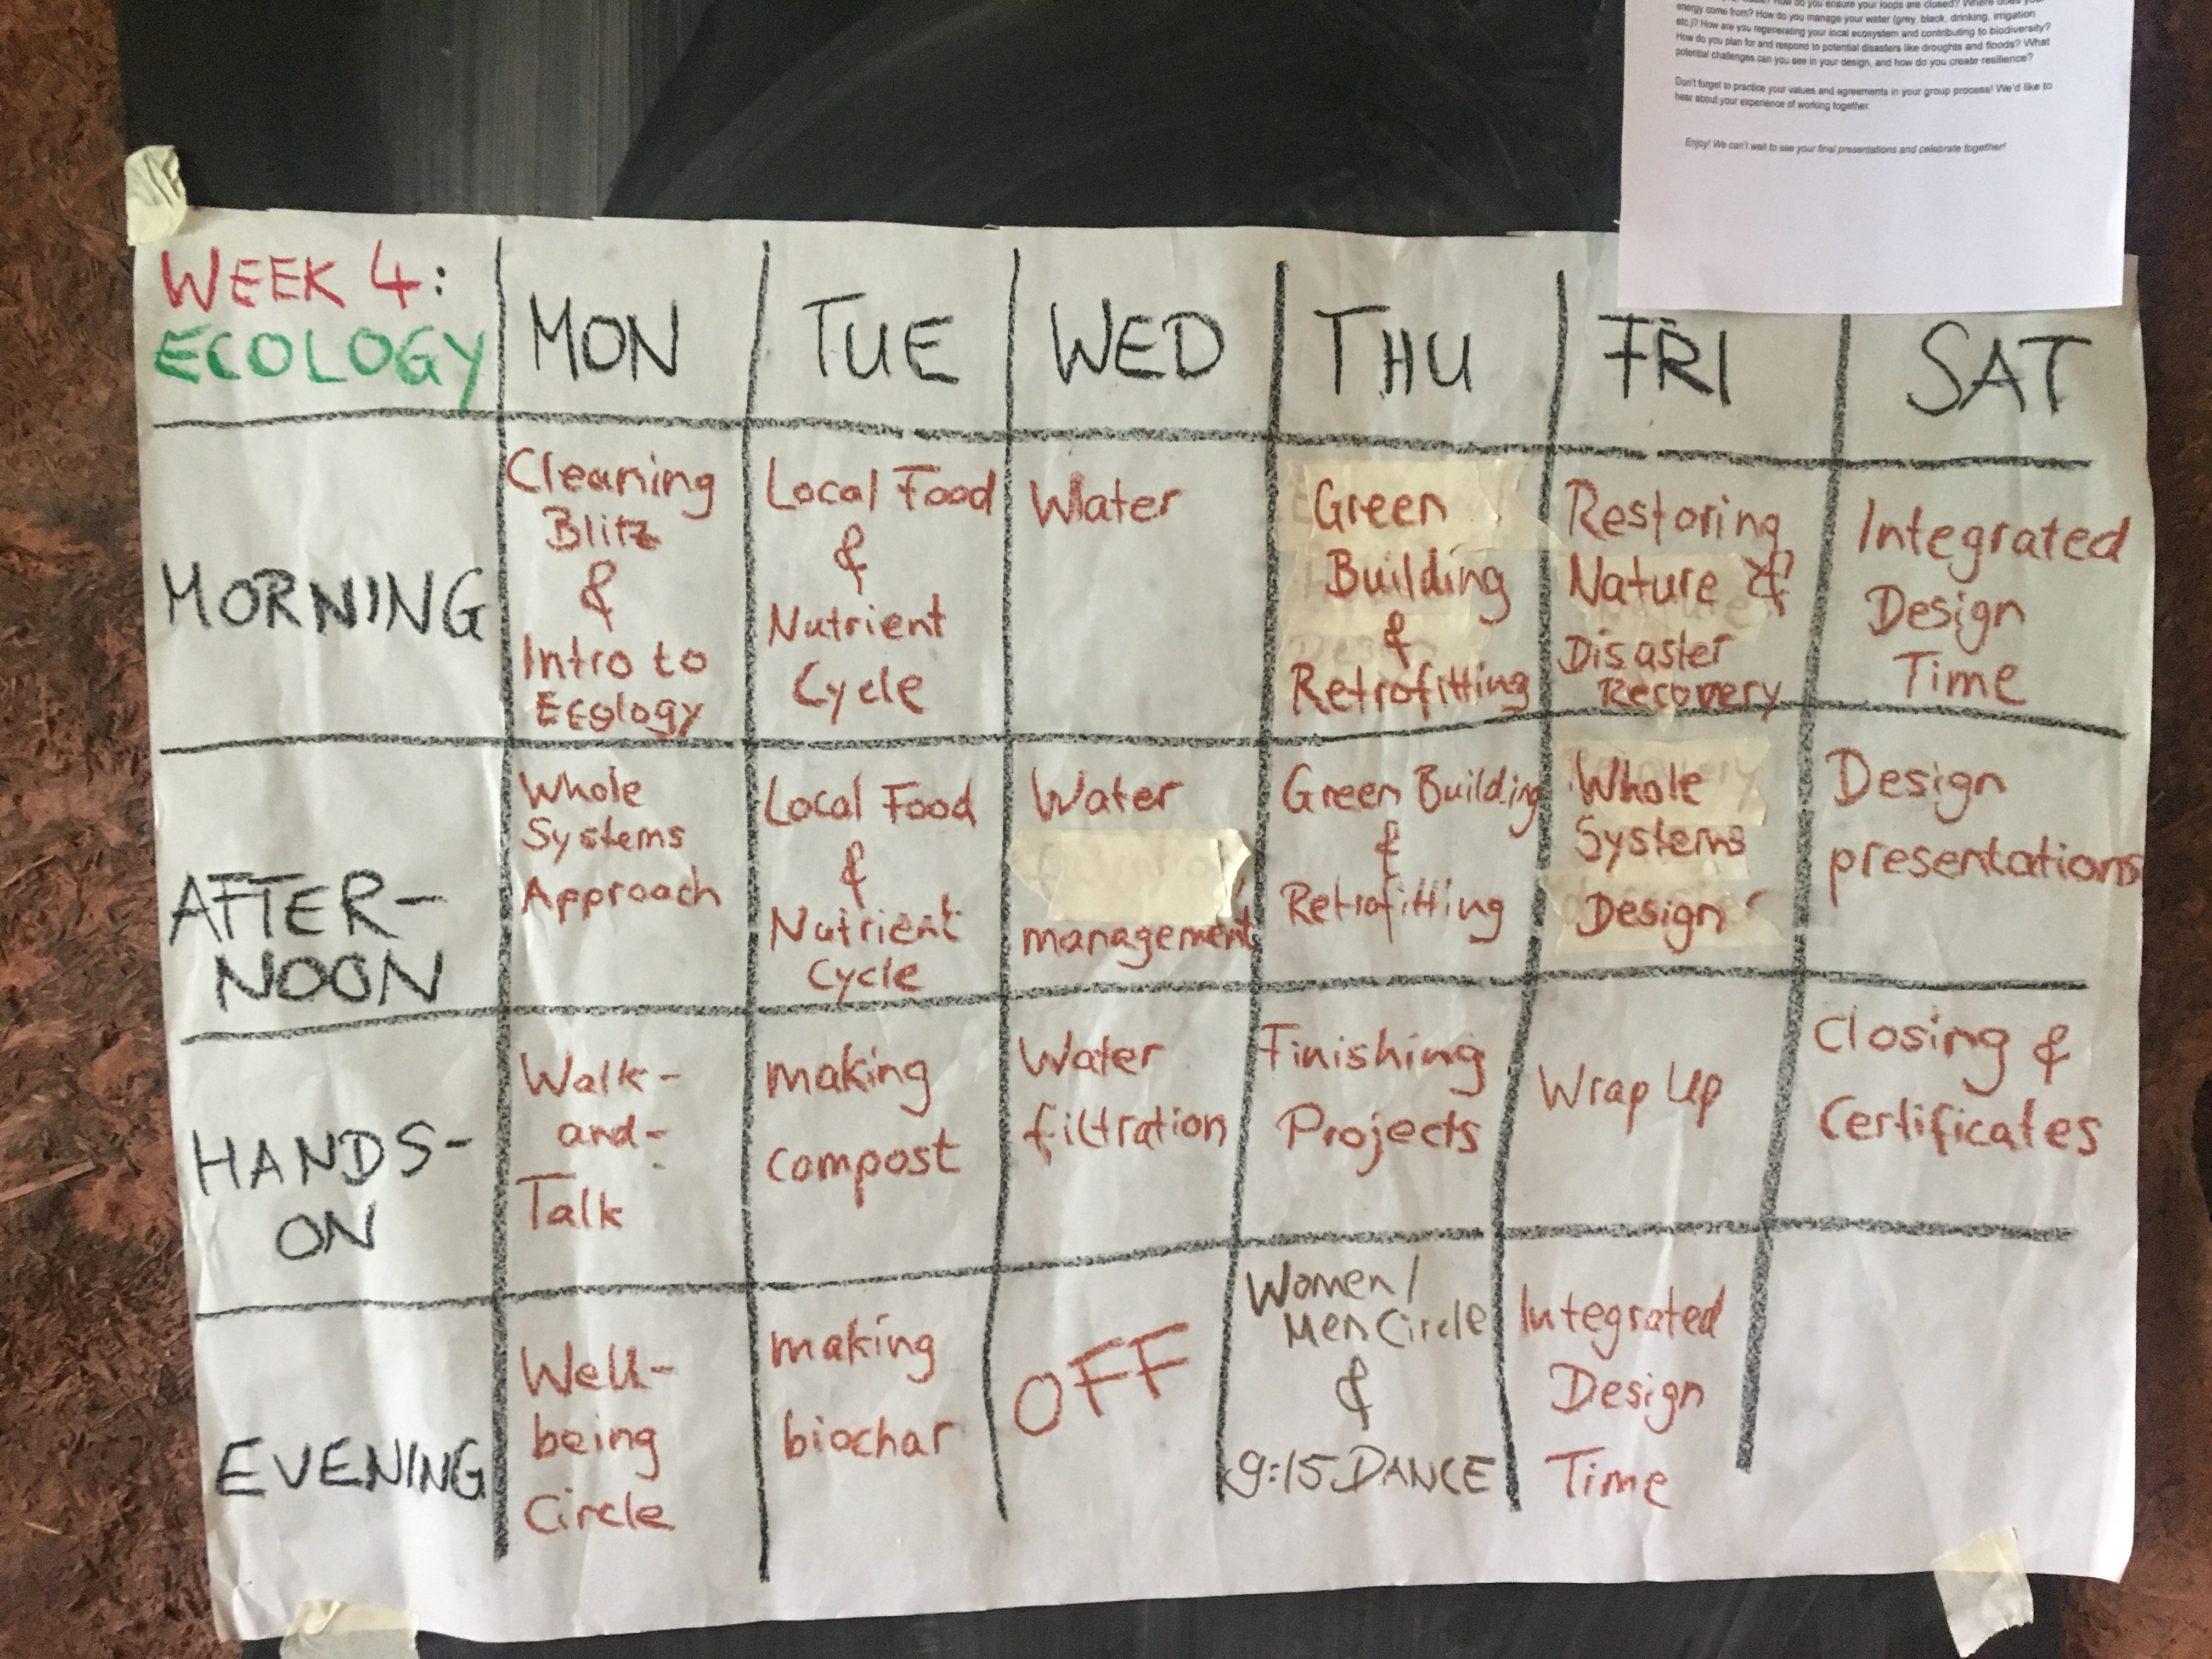 energy come from? How do you manage your water (grey, black, drinking, irrigation
etc.)? How are you regenerating your local ecosystem and contributing to biodiversity?
How do you plan for and respond to potential disasters like droughts and floods? What
potential challenges can you see in your design, and how do you create resilience?
Don't forget to practice your values and agreements in your group process! We'd like to
hear about your experience of working together.
Enjoy! We can't wait to see your final presentations and celebrate together!
WEEK 4:
ECOLOGY
MON
TUE
WED
THU
FRI
SAT
MORNING
Cleaning
Blitz
&
Intro to
Ecology
Local Food
&
Nutrient
Cycle
Water
Green
Building
&
Retrofitting
Restoring
Nature &
Disaster
Recovery
Integrated
Design
Time
AFTER-
NOON
Whole
Systems
Approach
Local Food
&
Nutrient
Cycle
Water
management
Green Building
&
Retrofitting
Whole
Systems
Design
Design
presentations
HANDS-
ON
Walk-
and-
Talk
making
compost
Water
filtration
Finishing
Projects
Wrap Up
Closing &
Certificates
EVENING
Well-
being
Circle
making
biochar
OFF
Women/
Men Circle
&
9:15 DANCE
Integrated
Design
Time